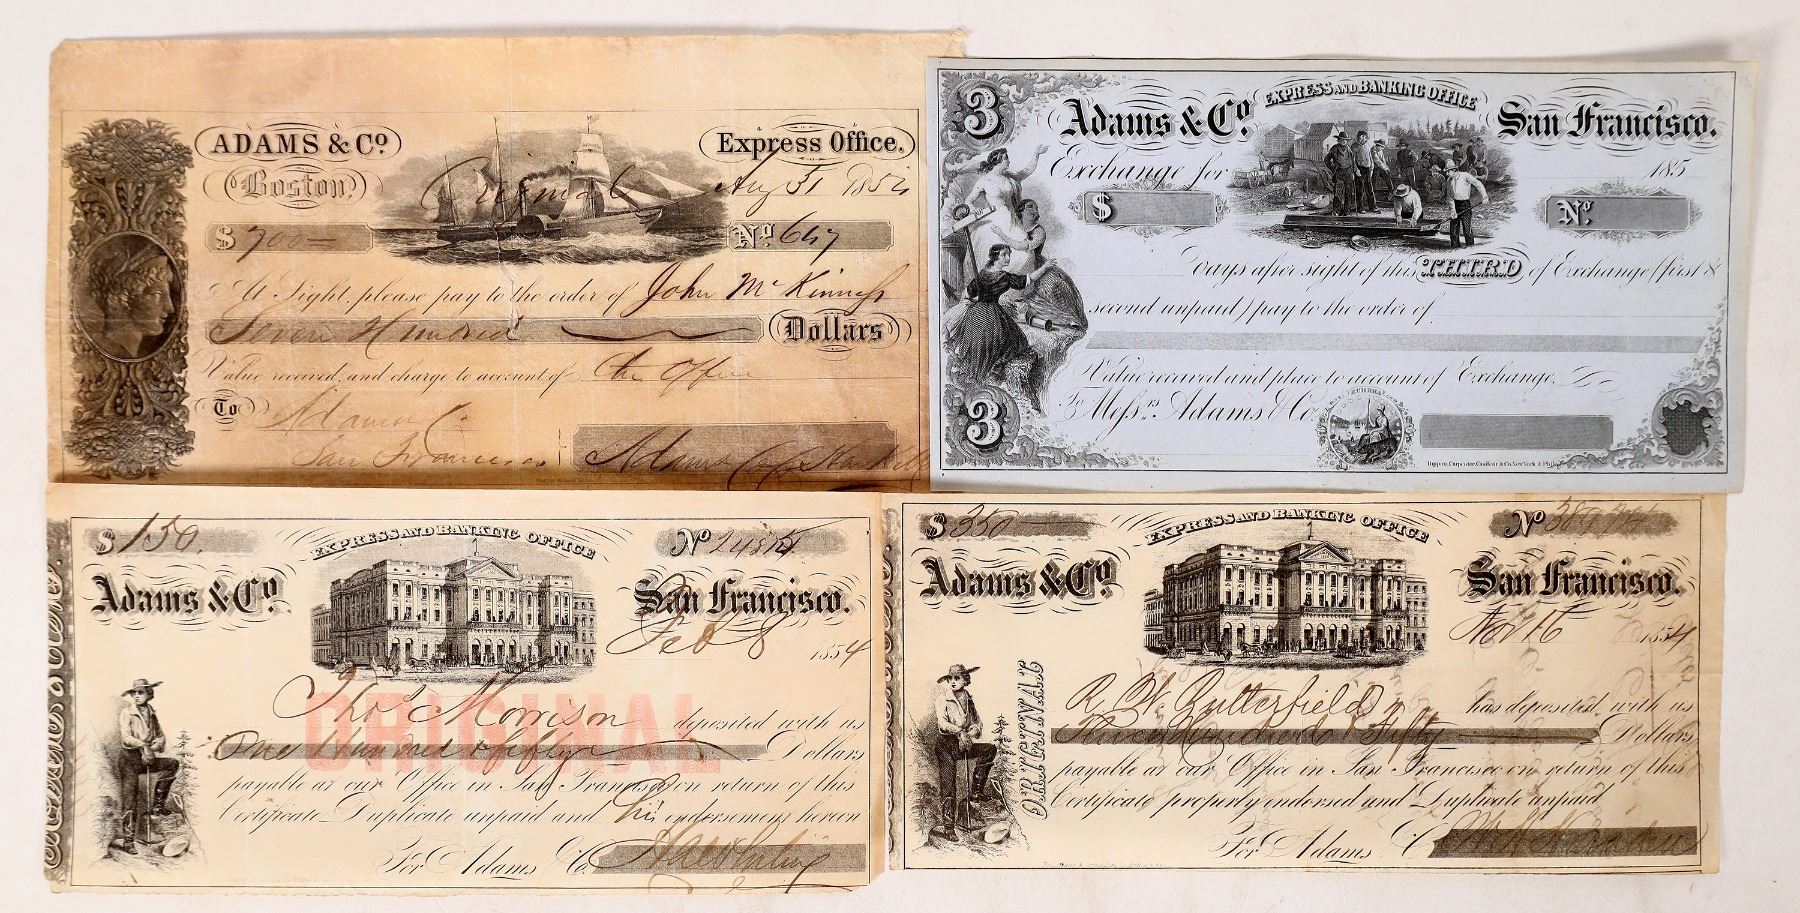 ADAMS & Co.
Express Office.
Boston,
Original
Aug 31 1854
$ 700 —
No. 647
At Sight, please pay to the order of John McKinness
Seven Hundred
Dollars
Value received, and charge to account of this Office
To Adams Co
San Francisco
Adams Co
3
EXPRESS AND BANKING OFFICE
Adams & Co.
San Francisco.
Exchange for
185
$
No.
Days after sight of this THIRD of Exchange (first &
second unpaid) pay to the order of
Value received and place to account of Exchange.
To Messrs. Adams & Co.
EUREKA
3
Toppan, Carpenter, Casilear & Co. New York & Phila.
$ 150.
EXPRESS AND BANKING OFFICE
No
Adams & Co.
San Francisco.
Feb 8 1854
ORIGINAL
Thos Morrison deposited with us
One Hundred & fifty Dollars
payable at our Office in San Francisco on return of this
Certificate Duplicate unpaid and his endorsement hereon
For Adams & Co.
$ 350 —
EXPRESS AND BANKING OFFICE
No
Adams & Co.
San Francisco.
Nov 16 1854
R. W. Butterfield has deposited with us
Three Hundred & Fifty Dollars
payable at our Office in San Francisco on return of this
Certificate properly endorsed and Duplicate unpaid
For Adams & Co